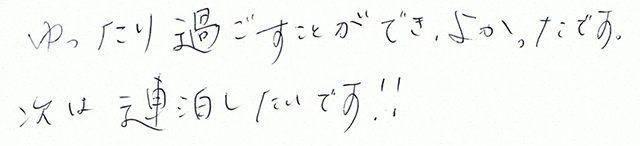 ゆったり過ごすことができ、よかったです。
次は連泊したいです!!